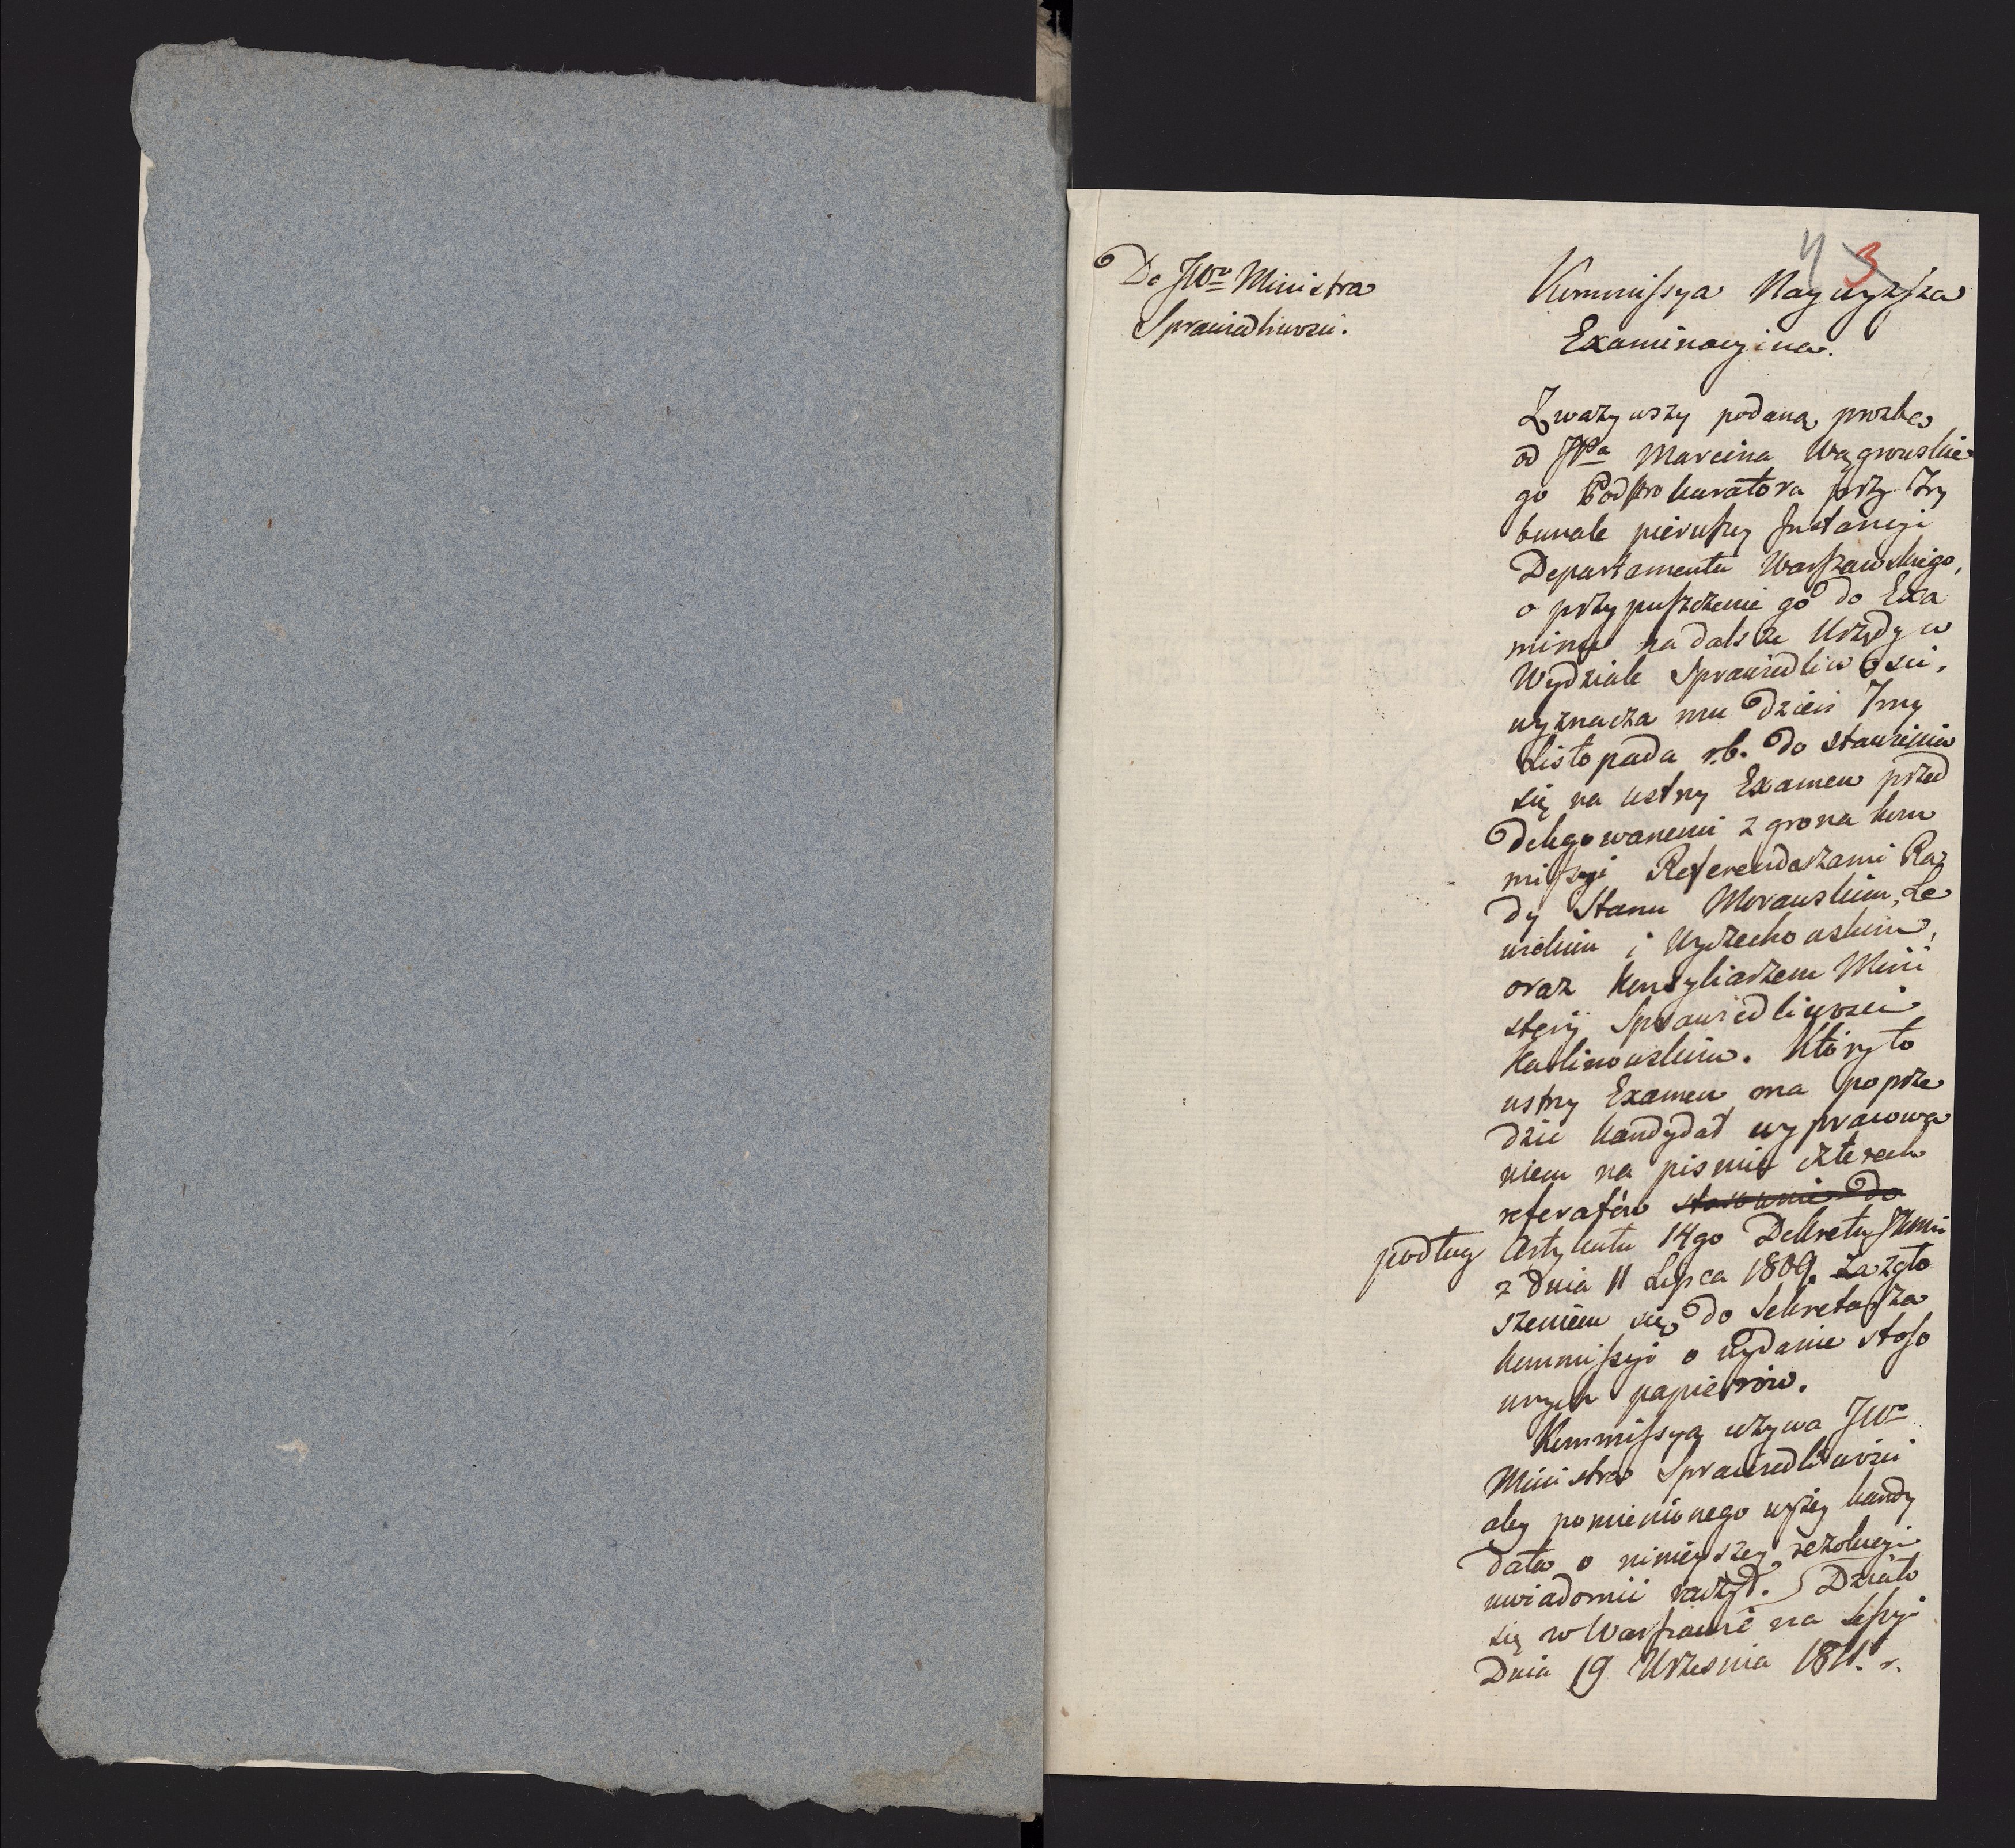 4 3
Do JWo Ministra
Sprawiedliwości.
Kommissya Naywyższa
Examinacyjna.
Zważywszy podaną prozbę
od JPa Marcina Wągrowskie
go Podprokuratora przy Try
bunale pierwszey Instancyi
Departamentu Warszawskiego,
o przypuszczenie go do Exa
minu na dalsze Urzędy w
Wydziale Sprawiedliwości,
wyznacza mu dzień 7my
Listopada r.b. do stawienia
się na ustny Examen przed
delegowanemi z grona kom
missyi Referendarzami Ra
dy Stanu Morawskim, Le
wickim i Wyczechowskim,
oraz Konsyliarzem Mini
steryi Sprawiedliwości
Kalinowskim. Który to
ustny Examen ma poprze
dzić kandydat wypracowa
niem na pismie czterech
referatów stosownie do
podług Artykułu 14go Dekretu
z dnia 11 Lipca 1809. za zgło
szeniem się do Sekretarza
kommissyi o wydanie stoso
wnych papierów.
Kommissya używa JWo
Ministra Sprawiedliwości
aby pomienionego wyżey kandy
data o ninieyszey rezolucyi
uwiadomić raczył. Działo
się w Warszawie na Sessyi
Dnia 19 Września 1811. r.